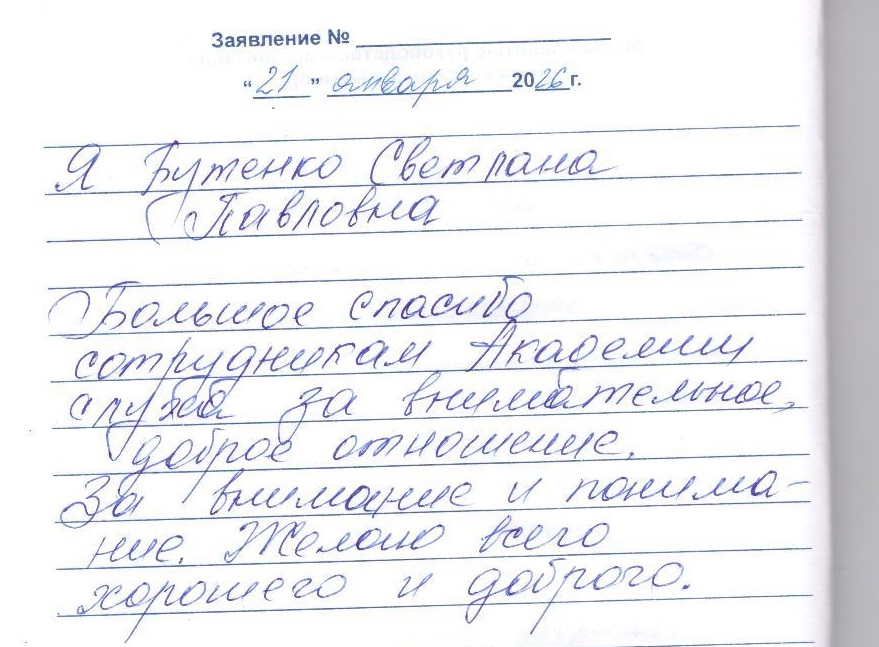 Заявление №
"21" января 2026 г.
Я Бутенко Светлана
Павловна
Большое спасибо
сотрудникам Академии
слуха за внимательное,
доброе отношение.
За внимание и понима-
ние. Желаю всего
хорошего и доброго.